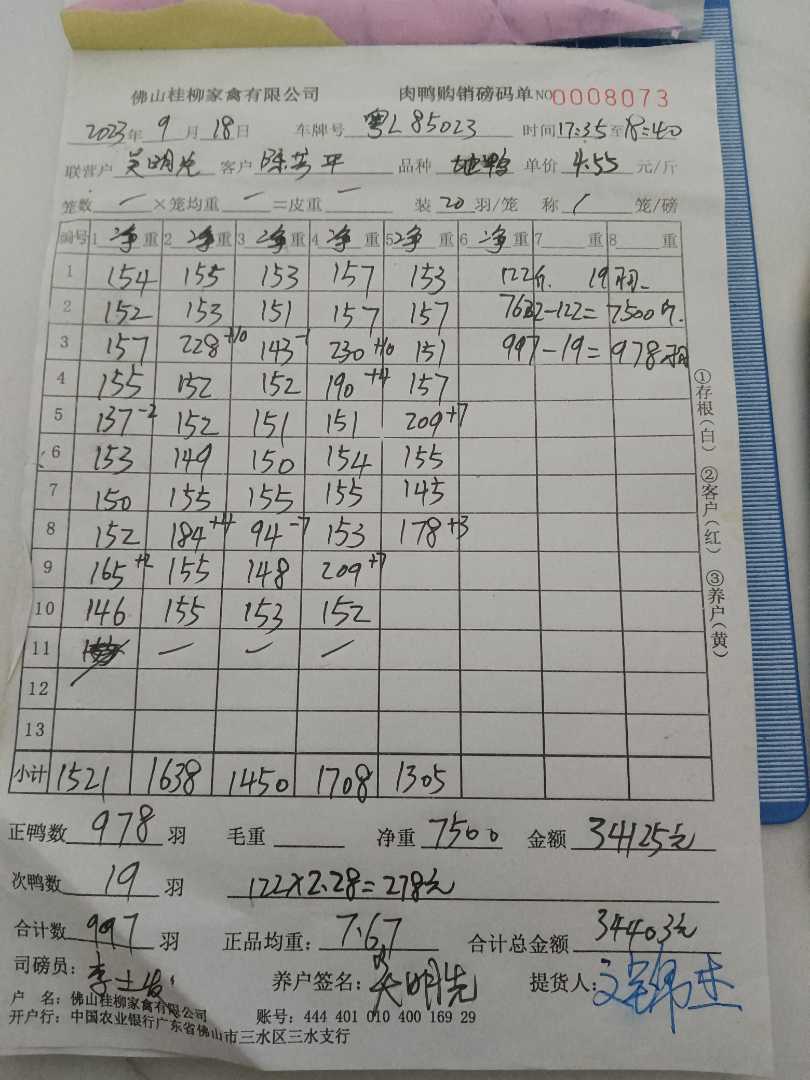 佛山桂柳家禽有限公司 肉鸭购销磅码单 NO 0008073
2023年 9月 18日 车牌号 粤L85023 时间17:35至18:40
联营户 吴明先 客户 陈芳平 品种 地鸭 单价 4.55 元/斤
笼数 一 ×笼均重 一 =皮重 一 装 20 羽/笼 称 1 笼/磅
编号 1 净 重 2 净 重 3 净 重 4 净 重 5 净 重 6 净 重 7 重 8 重
1 154 155 153 157 153 122斤. 19羽
2 152 153 151 157 157 7622-122=7500斤.
3 157 228+10 143-1 230+10 151 997-19=978羽
4 155 152 152 190+4 157
5 137-2 152 151 151 209+7
6 153 149 150 154 155
7 150 155 155 155 145
8 152 184+4 94-7 153 178+3
9 165+2 155 148 209+7
10 146 155 153 152
11 一 一 一
12
13
小计 1521 1638 1450 1708 1305
正鸭数 978 羽 毛重 净重 7500 金额 34125元
次鸭数 19 羽 122×2.28=278元
合计数 997 羽 正品均重: 7.67 合计总金额 34403元
司磅员: 养户签名: 吴明先 提货人:
户 名: 佛山桂柳家禽有限公司
开户行: 中国农业银行广东省佛山市三水区三水支行 账号: 444 401 010 400 169 29
①存根(白) ②客户(红) ③养户(黄)